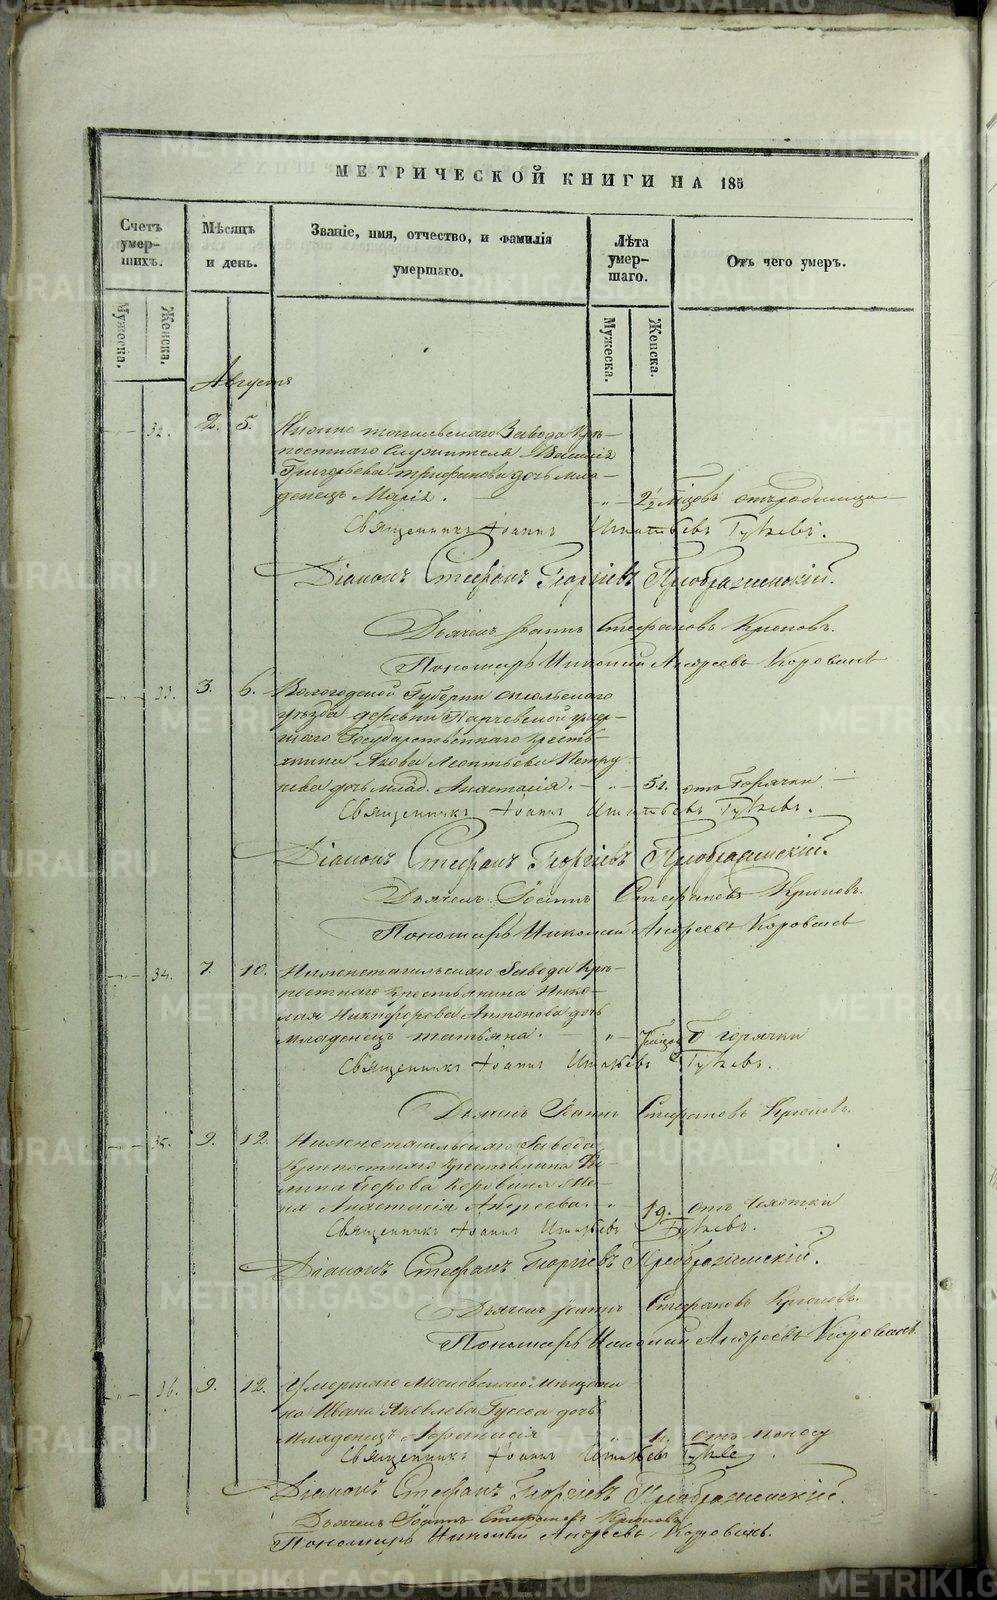 МЕТРИЧЕСКОЙ КНИГИ НА 185
Счетъ умер- шихъ.
Мѣсяцъ и день.
Званіе, имя, отчество, и фамилія умершаго.
Лѣта умер- шаго.
Отъ чего умеръ.
Мужеска.
Женска.
Мужеска.
Женска.
Августа
32. 2. 5. Нижне тагильскаго Завода Крѣ-
постнаго Служителя Василія
Григорьева Трифанова дочь мла-
денецъ Марія. 2½
Священникъ Іоаннъ Игнатьевъ
Діаконъ Стефанъ Георгіевъ Преображенскій.
Дьячекъ Іоаннъ Стефановъ Крюковъ.
Пономарь Николай Андреевъ Коровинъ
33. 3. 6. Вологодской Губерніи
уѣзда деревни
Государственнаго Кресть-
янина Якова Леонтьева
дочь млад. Анастасія. 5 л. отъ Горячки
Священникъ Іоаннъ Игнатьевъ
Діаконъ Стефанъ Георгіевъ Преображенскій.
Дьячекъ Іоаннъ Стефановъ Крюковъ.
Пономарь Николай Андреевъ Коровинъ
34. 7. 10. Нижнетагильскаго Завода Крѣ-
постнаго Крестьянина Нико-
лая Никифорова Антонова дочь
младенецъ Татьяна. горячки
Священникъ Іоаннъ Игнатьевъ
Дьячекъ Іоаннъ Стефановъ Крюковъ.
35. 9. 12. Нижнетагильскаго Завода
Крепостнаго Крестьянина
Егорова Коровина Же-
на Анастасія Андреева. 19. отъ Чахотки
Священникъ Іоаннъ Игнатьевъ
Діаконъ Стефанъ Георгіевъ Преображенскій.
Дьячекъ Іоаннъ Стефановъ Крюковъ.
Пономарь Николай Андреевъ Коровинъ.
36. 9. 12. Умершаго Московскаго Мѣщани-
на Ивана Яковлева Гусева дочь
Младенецъ отъ поносу
Священникъ Іоаннъ Игнатьевъ
Діаконъ Стефанъ Георгіевъ Преображенскій.
Дьячекъ Іоаннъ Стефановъ Крюковъ
Пономарь Николай Андреевъ Коровинъ.
METRIKI.GASO-URAL.RU